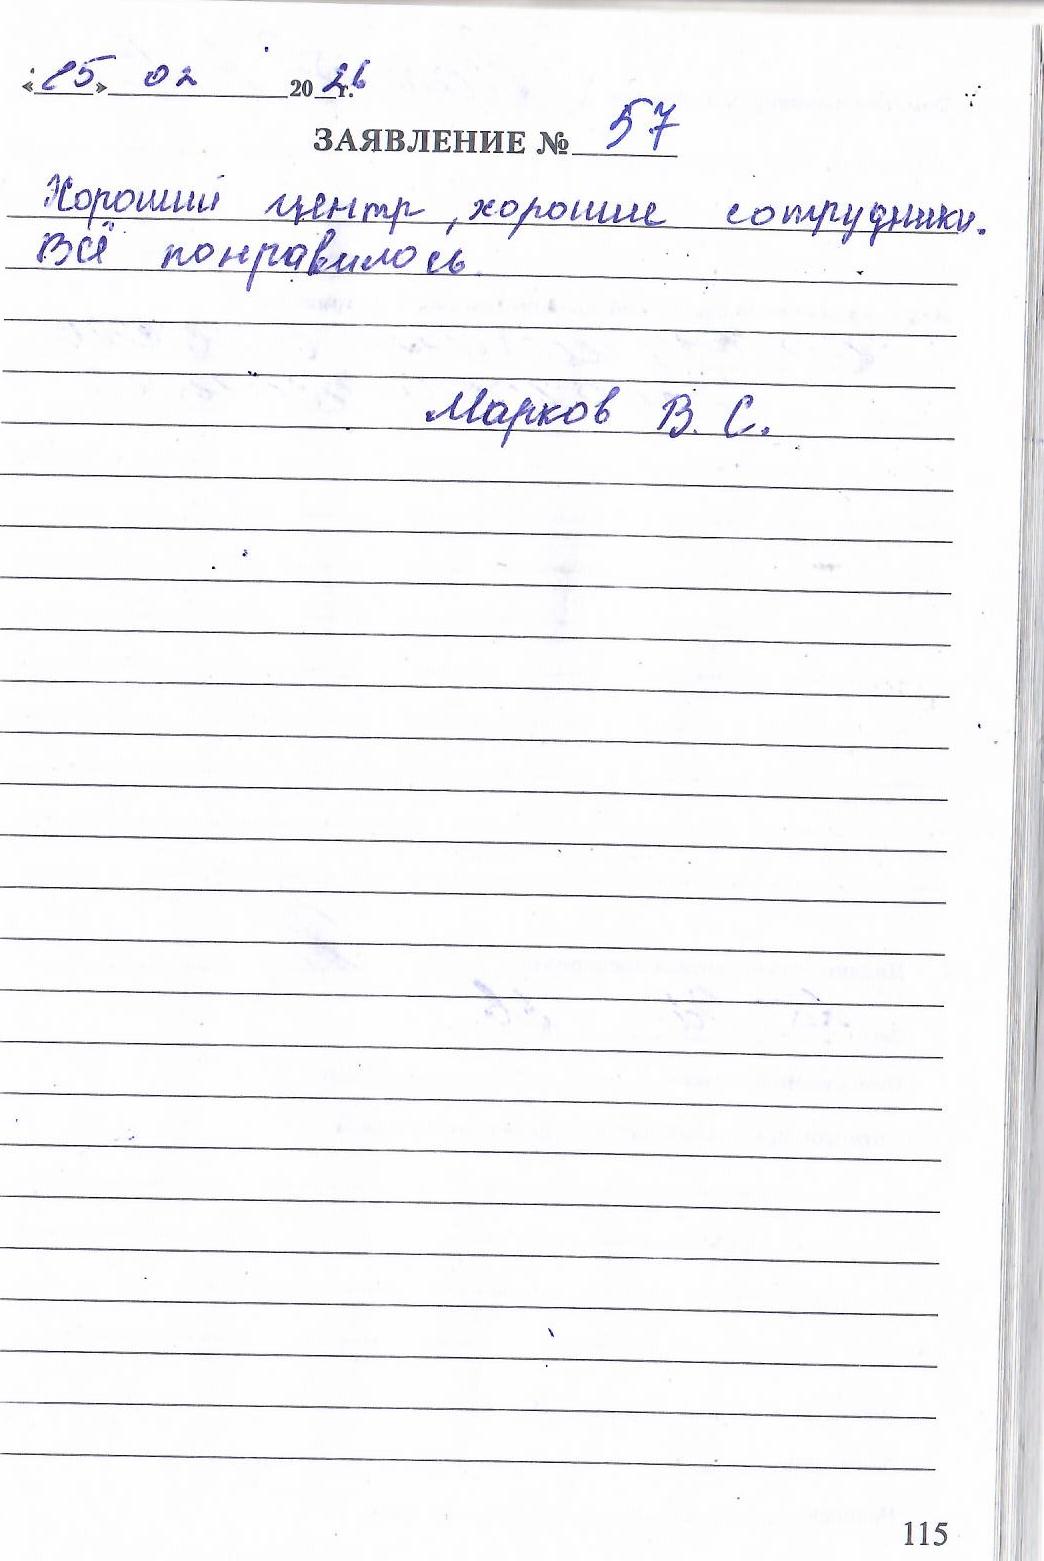 «25» 02 2026 г.
ЗАЯВЛЕНИЕ № 57
Хороший центр, хорошие сотрудники.
Всё понравилось
Марков В. С.
115